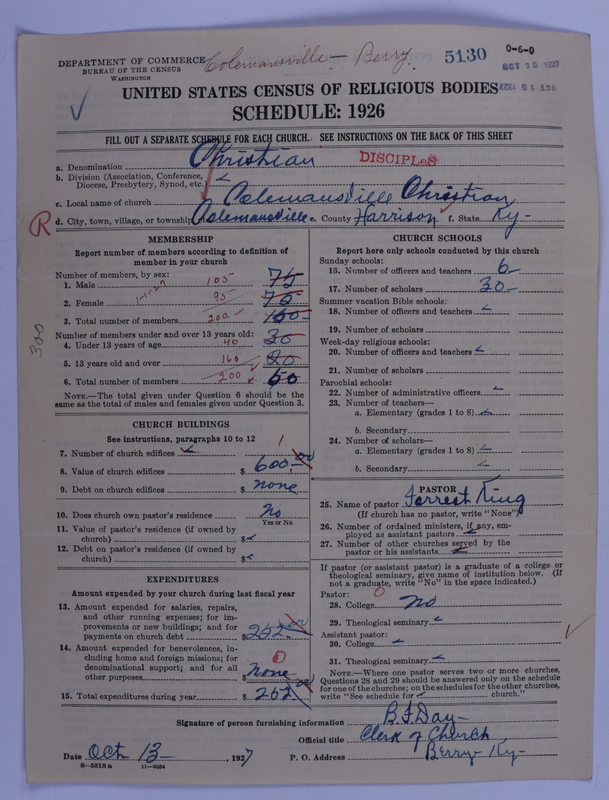 DEPARTMENT OF COMMERCE
BUREAU OF THE CENSUS
WASHINGTON
Colemansville — Berry.
5130
0-6-0
OCT 15 1927
UNITED STATES CENSUS OF RELIGIOUS BODIES
SCHEDULE: 1926
FILL OUT A SEPARATE SCHEDULE FOR EACH CHURCH. SEE INSTRUCTIONS ON THE BACK OF THIS SHEET
a. Denomination Christian DISCIPLES
b. Division (Association, Conference,
Diocese, Presbytery, Synod, etc.)
c. Local name of church Colemansville Christian
R d. City, town, village, or township Colemansville e. County Harrison f. State Ky-
MEMBERSHIP
Report number of members according to definition of
member in your church
Number of members, by sex:
1. Male 105 75
2. Female 1-1-27 95 75
3. Total number of members 200 150
Number of members under and over 13 years old:
4. Under 13 years of age 40 30
5. 13 years old and over 160 20
6. Total number of members 200 50
300
NOTE.—The total given under Question 6 should be
same as the total of males and females given under Question 3.
CHURCH BUILDINGS
See instructions, paragraphs 10 to 12
7. Number of church edifices 1
8. Value of church edifices $ 600.00
9. Debt on church edifices $ none
10. Does church own pastor's residence no
Yes or No
11. Value of pastor's residence (if owned by
church) $
12. Debt on pastor's residence (if owned by
church) $
EXPENDITURES
Amount expended by your church during last fiscal year
13. Amount expended for salaries, repairs,
and other running expenses; for im-
provements or new buildings; and for
payments on church debt $ 252.00
14. Amount expended for benevolences, in-
cluding home and foreign missions; for
denominational support; and for all
other purposes $ none 0
15. Total expenditures during year $ 252.00
CHURCH SCHOOLS
Report here only schools conducted by this church
Sunday schools:
16. Number of officers and teachers 6-
17. Number of scholars 30-
Summer vacation Bible schools:
18. Number of officers and teachers
19. Number of scholars
Week-day religious schools:
20. Number of officers and teachers
21. Number of scholars
Parochial schools:
22. Number of administrative officers
23. Number of teachers—
a. Elementary (grades 1 to 8)
b. Secondary
24. Number of scholars—
a. Elementary (grades 1 to 8)
b. Secondary
PASTOR
25. Name of pastor Forrest King
(If church has no pastor, write "None")
26. Number of ordained ministers, if any, em-
ployed as assistant pastors
27. Number of other churches served by the
pastor or his assistants
If pastor (or assistant pastor) is a graduate of a college or
theological seminary, give name of institution below. (If
not a graduate, write "No" in the space indicated.)
Pastor: 0
28. College no
29. Theological seminary
Assistant pastor:
30. College
31. Theological seminary
NOTE.—Where one pastor serves two or more churches,
Questions 28 and 29 should be answered only on the schedule
for one of the churches; on the schedules for the other churches,
write "See schedule for church."
Signature of person furnishing information B.F. Day-
Official title Clerk of Church
Date Oct 13 -, 1927 P. O. Address Berry- Ky-
8—5518a 11—9084